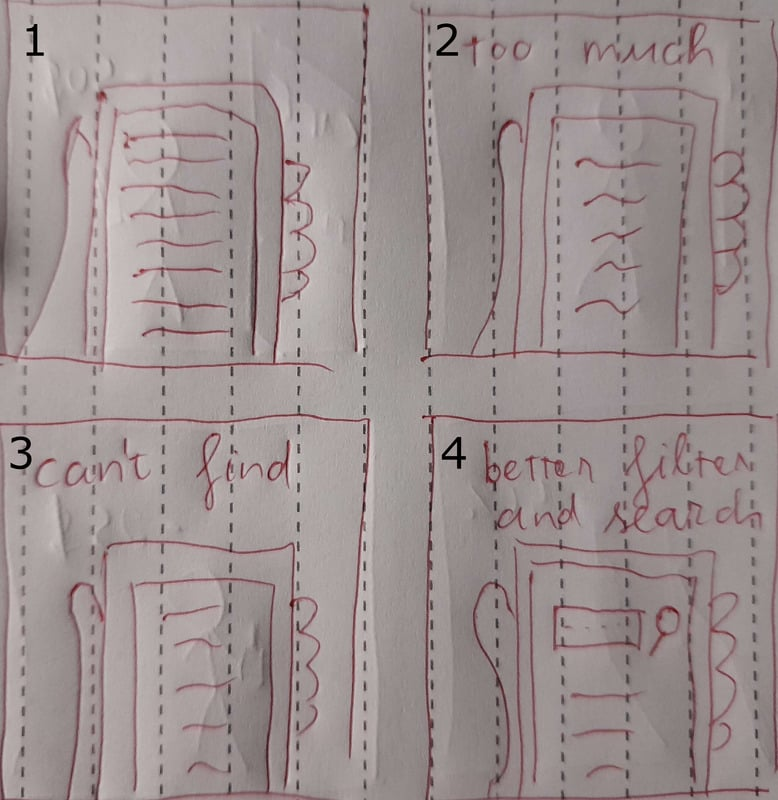 1
2 too much
3 can't find
4 better filter
and search